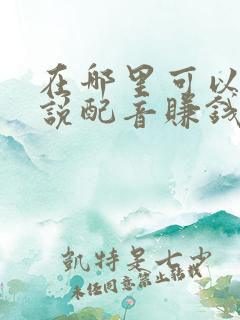 在哪里可以
說配音賺錢
凱特是七少
未经同意禁止转载